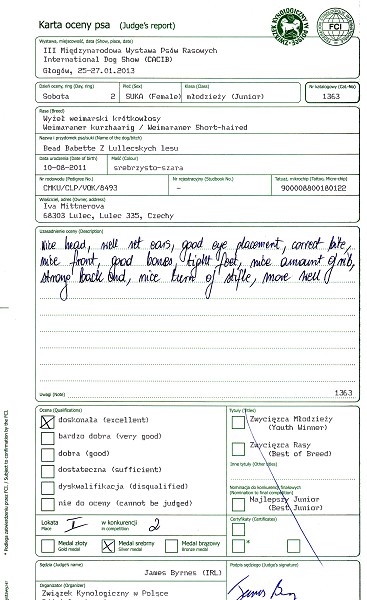 Karta oceny psa (Judge's report)
ZWIĄZEK KYNOLOGICZNY W POLSCE
FCI
Wystawa, miejscowość, data (Show, place, date)
III Międzynarodowa Wystawa Psów Rasowych
International Dog Show (CACIB)
Głogów, 25-27.01.2013
Dzień oceny, ring (Day, ring) Płeć (Sex) Klasa (Class) Nr katalogowy (Cat.-No)
Sobota 2 SUKA (Female) młodzieży (Junior) 1363
Rasa (Breed)
Wyżeł weimarski krótkowłosy
Weimaraner kurzhaarig / Weimaraner Short-haired
Nazwa i przydomek psa/suki (Name of the dog/bitch)
Bead Babette Z Lulleckskych lesu
Data urodzenia (Date of birth) Maść (Colour)
10-08-2011 srebrzysto-szara
Nr rodowodu (Pedigree No.) Nr rejestracyjny (Studbook No.) Tatuaż, mikrochip (Tattoo, Micro-chip)
CMKU/CLP/VOK/8493 - 900008800180122
Właściciel, adres (Owner, address)
Iva Mittnerova
68303 Lulec, Lulec 335, Czechy
Uzasadnienie oceny (Description)
Nice head, well set ears, good eye placement, correct bite,
nice front, good bones, tight feet, nice amount of rib,
strong back end, nice turn of stifle, move well
Uwagi (Note) 1363
Ocena (Qualifications)
doskonała (excellent)
bardzo dobra (very good)
dobra (good)
dostateczna (sufficient)
dyskwalifikacja (disqualified)
nie do oceny (cannot be judged)
Tytuły (Titles)
Zwycięzca Młodzieży
(Youth Winner)
Zwycięzca Rasy
(Best of Breed)
Inne tytuły (Other titles)
Nominacja do konkurencji finałowych
(Nomination to final competition)
Najlepszy Junior
(Best Junior)
Lokata I w konkurencji 2
Place in competition
Certyfikaty (Certificates)
Medal złoty Medal srebrny Medal brązowy
Gold medal Silver medal Bronze medal
Sędzia (Judge) Podpis sędziego (Judge's signature)
James Byrnes (IRL)
Organizator (Organizer)
Związek Kynologiczny w Polsce
* Podlega zatwierdzeniu przez FCI. / Subject to confirmation by the FCI.